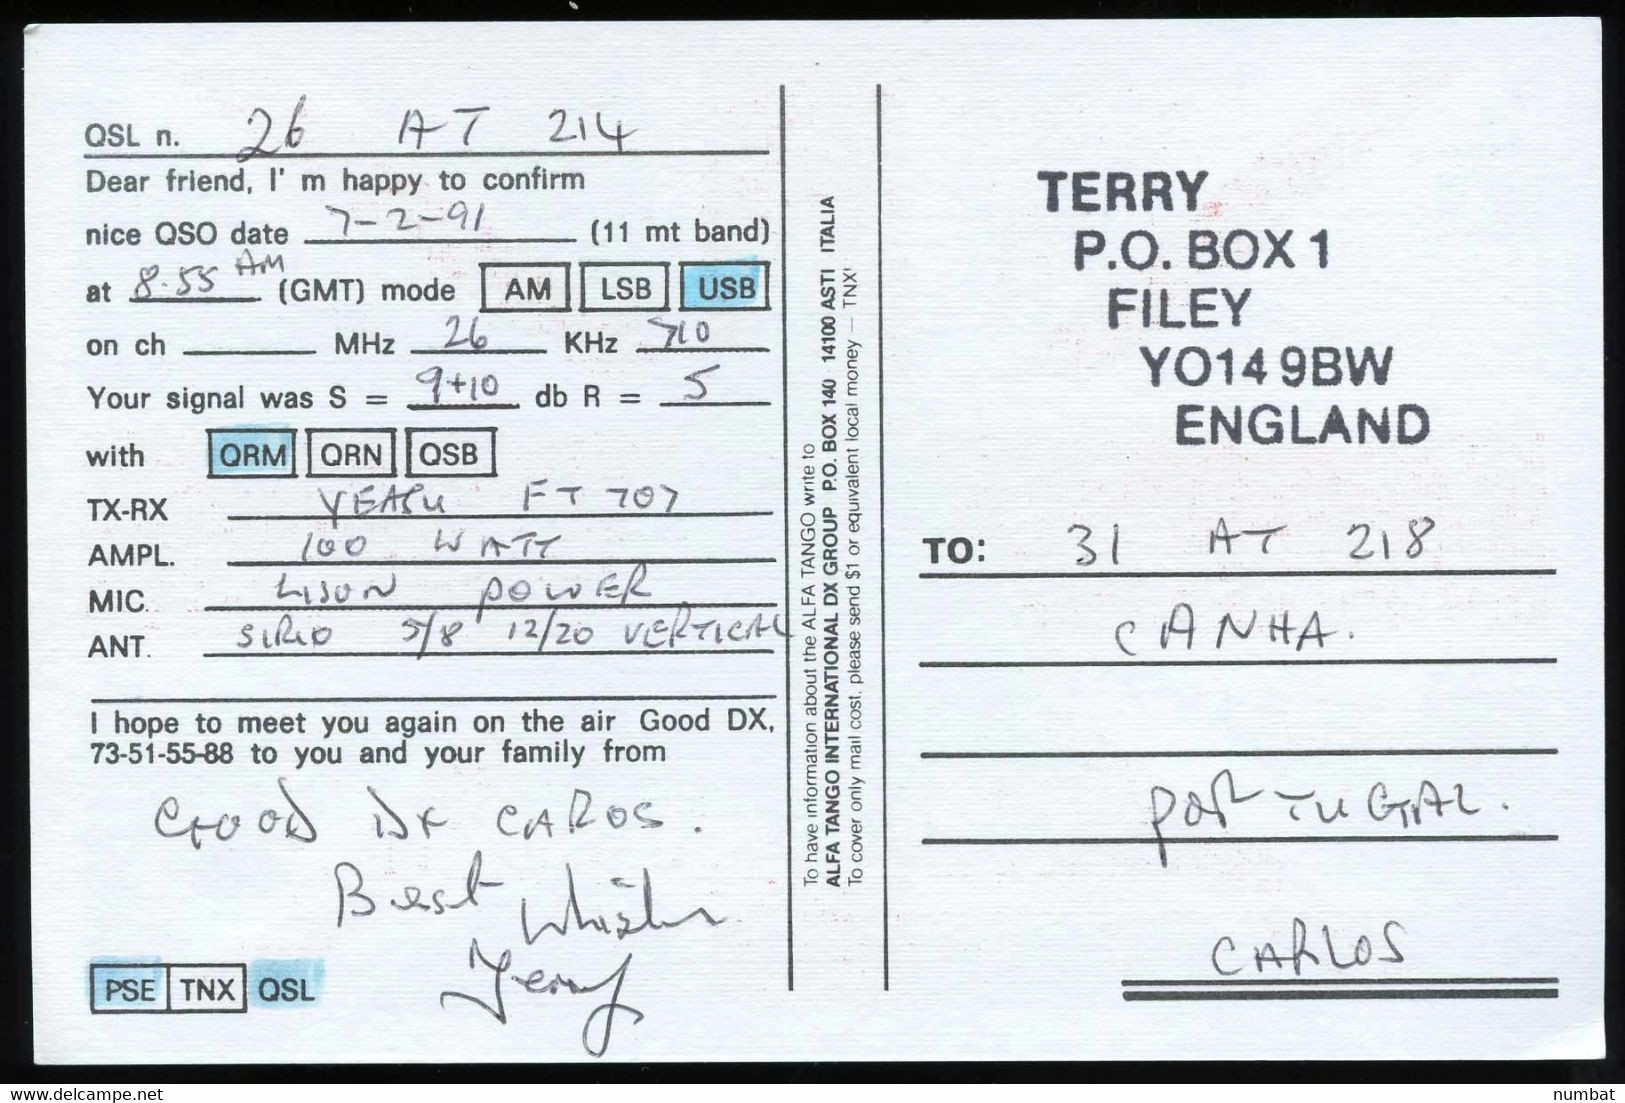 QSL n. 26 AT 214
Dear friend, I' m happy to confirm
nice QSO date 7-2-91 (11 mt band)
at 8.55 AM (GMT) mode AM LSB USB
on ch MHz 26 KHz 710
Your signal was S = 9+10 db R = 5
with QRM QRN QSB
TX-RX YEASU FT 707
AMPL. 100 WATT
MIC. LISON POWER
ANT. SIRIO 5/8 12/20 VERTICAL
I hope to meet you again on the air Good DX,
73-51-55-88 to you and your family from
GOOD DX CAROS.
Best Whishes
Terry
PSE TNX QSL
To have information about the ALFA TANGO write to
ALFA TANGO INTERNATIONAL DX GROUP P.O. BOX 140 14100 ASTI ITALIA
To cover only mail cost, please send $1 or equivalent local money — TNX'
TERRY
P.O. BOX 1
FILEY
YO14 9BW
ENGLAND
TO: 31 AT 218
CANHA.
PORTUGAL.
CARLOS
https://www.delcampe.net
numbat